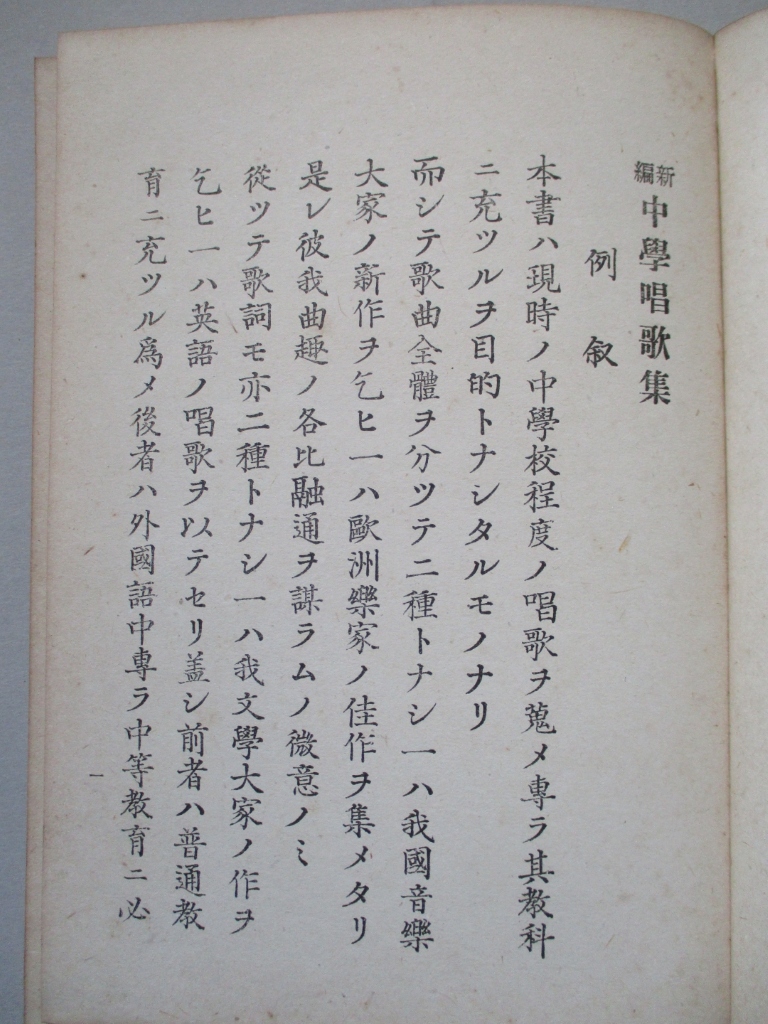 新編 中學唱歌集
例叙
本書ハ現時ノ中學校程度ノ唱歌ヲ蒐メ專ラ其教科
ニ充ツルヲ目的トナシタルモノナリ
而シテ歌曲全體ヲ分ツテ二種トナシ一ハ我國音樂
大家ノ新作ヲ乞ヒ一ハ歐洲樂家ノ佳作ヲ集メタリ
是レ彼我曲趣ノ各比融通ヲ謀ラムノ微意ノミ
從ツテ歌詞モ亦二種トナシ一ハ我文學大家ノ作ヲ
乞ヒ一ハ英語ノ唱歌ヲ以テセリ盖シ前者ハ普通教
育ニ充ツル爲メ後者ハ外國語中專ラ中等教育ニ必
一